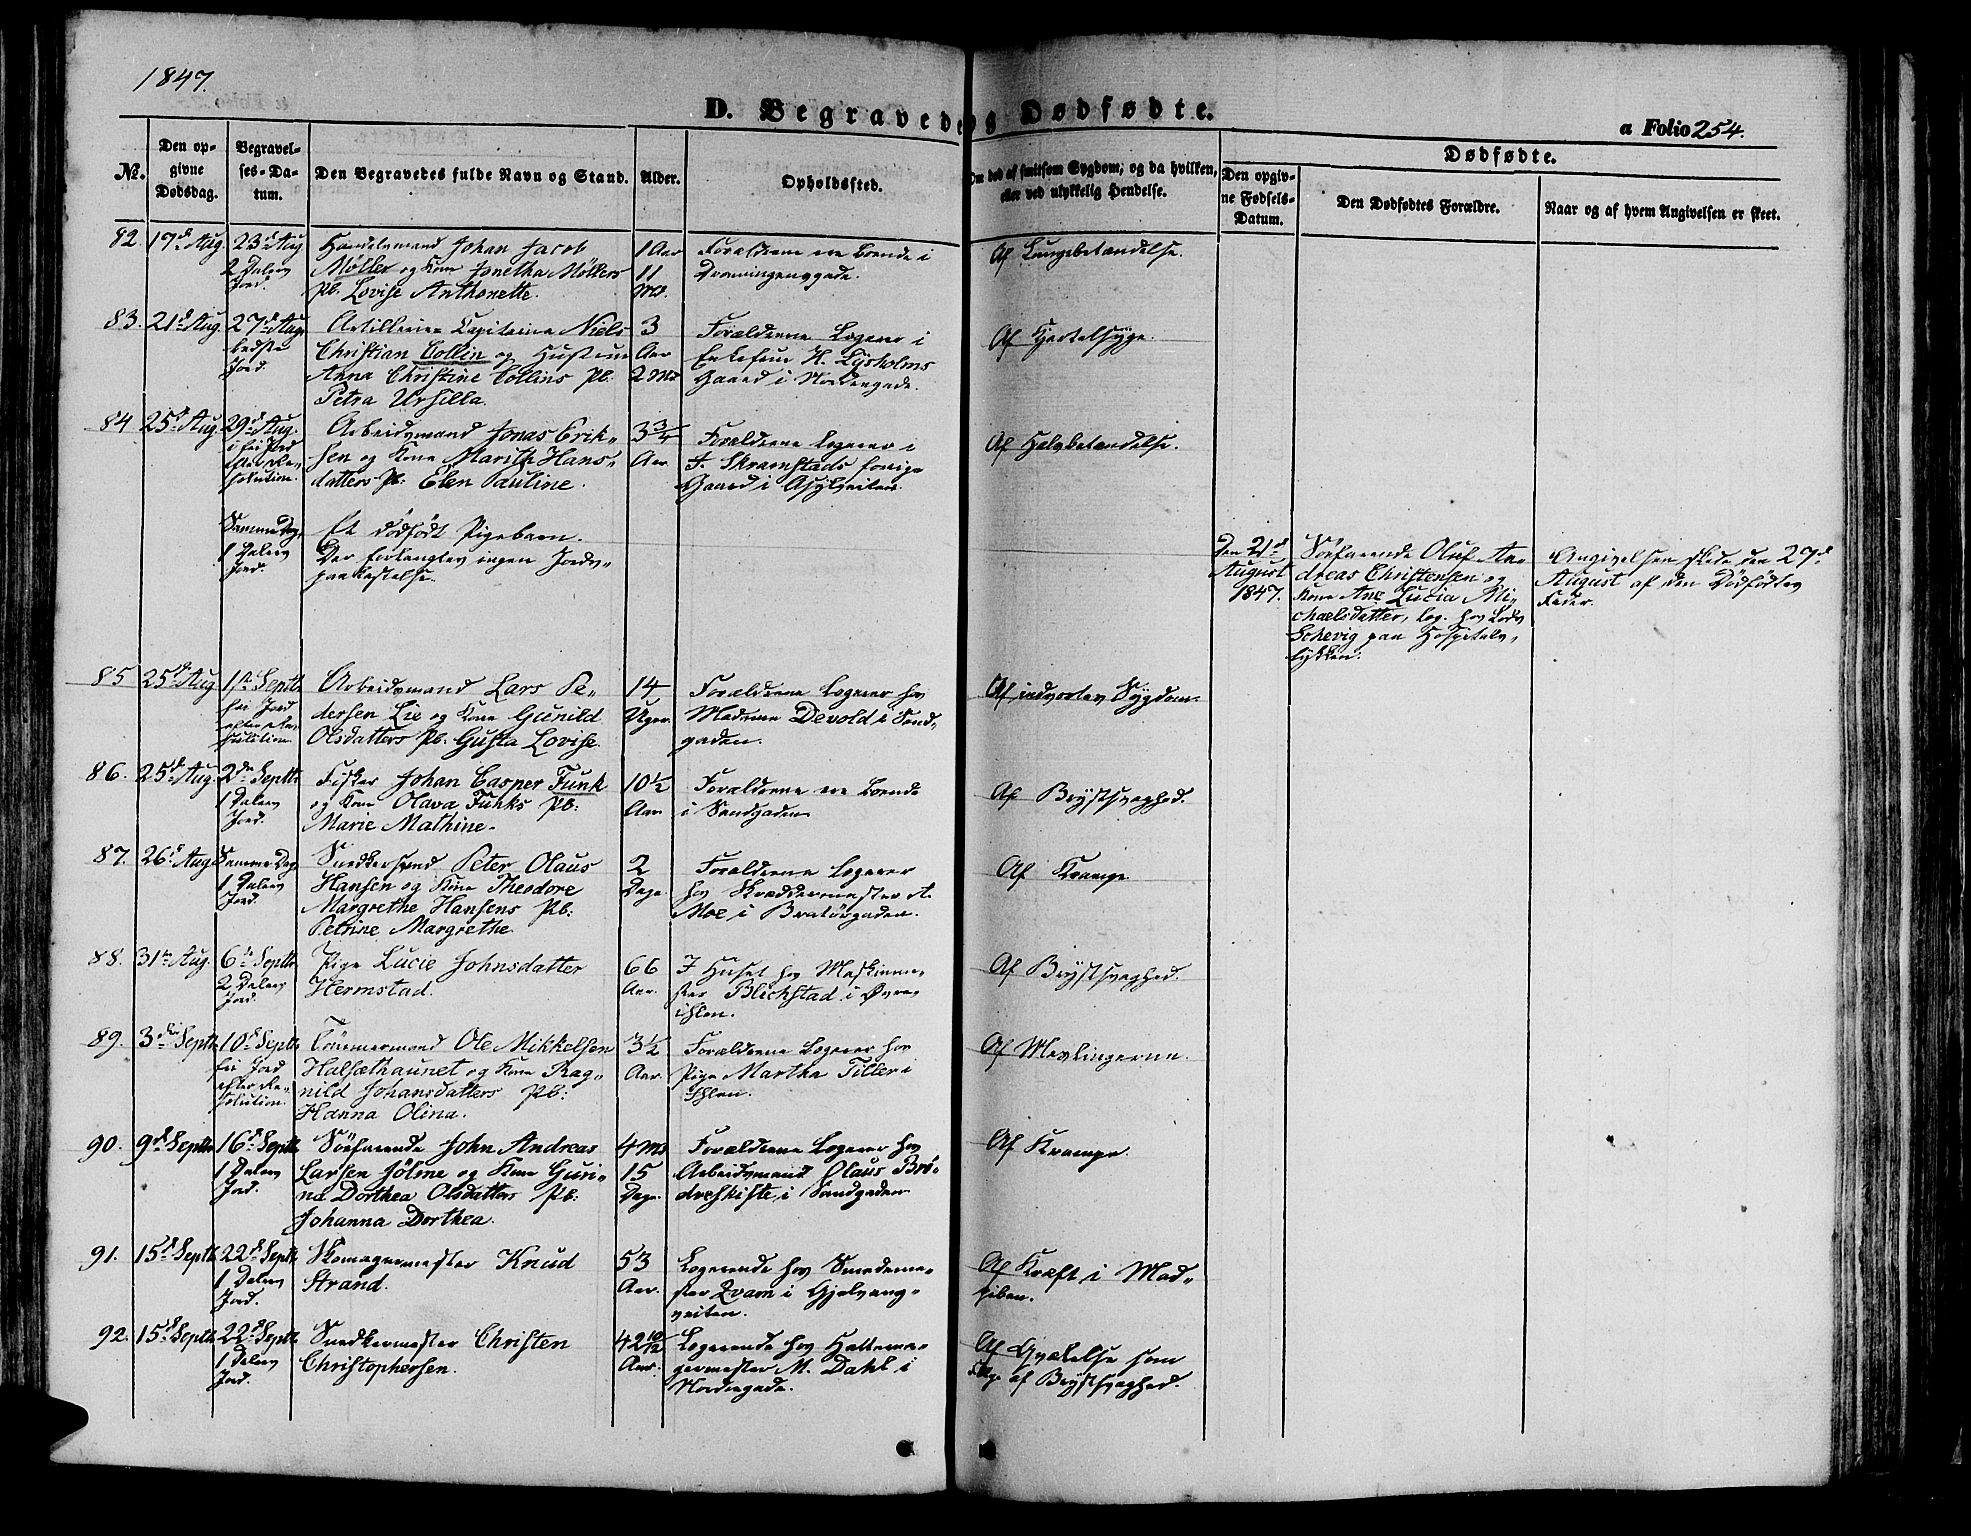 1847.
D. Begravede og Dødfødte.
a Folio 254.
No.
Den opgivne Dødsdag.
Begravelses-Datum.
Den Begravedes fulde Navn og Stand.
Alder.
Opholdssted.
Om død af smitsom Sygdom, og da hvilken, eller ved ulykkelig Hendelse.
Dødfødte.
Den opgivne Fødsels-Datum.
Den Dødfødtes Forældre.
Naar og af hvem Angivelsen er skeet.
82. 17d Aug. 23d Aug
2 Dalers
Jord.
Handelsmand Johan Jacob
Møller og Kone Jonetha Møllers
Pb. Lovise Anthonette.
1 Aar
11
Md.
Forældrene ere Boende i
Dronningensgade.
Af Lungebetændelse.
83. 21d Aug. 27d Aug.
bedste
Jord.
Artillerie Kapitaine Niels
Christian Collin og Hustrue
Anna Christine Collins Pb.
Petra Ursilla.
3
Aar
2 Md
Forældrene Logerer i
Enkefrue H. Lysholms
Gaard i Nordregade.
Af Kjertelsyge.
84 25d Aug. 29d Aug.
i fri Jord
efter Re-
solution.
Arbeidsmand Jonas Erik-
sen og Kone Marith Hans-
datters Pb: Elen Pauline.
3 3/4
Aar
Forældrene Logerer i
F. Skramstads forrige
Gaard i Asylveiten.
Af Halsbetændelse.
Samme Dag.
1 Dalers
Jord.
Et dødfødt Pigebarn.
Der forlangtes ingen Jords-
paakastelse.
Den 21d
August
1847.
Söefarende Oluf An-
dreas Christensen og
Kone Ane Lucia Mi-
chaelsdatter, log. hos Lods
Schevig paa Hospitals-
lykken.
Angivelsen skede den 27d
August af den Dødfødtes
Fader.
85 25d Aug 1ste Septbr
fri Jord
efter Re-
solution
Arbeidsmand Lars Pe-
dersen Lie og Kone Gunild
Olsdatters Pb: Gusta Lovise.
14
Uger
Forældrene Logerer hos
Madame Devold i Sand-
gaden.
Af indvortes Sygdom.
86. 25d Aug. 2den Septbr
1 Dalers
Jord.
Fisker Johan Casper Funk
og Kone Olava Funks Pb:
Marie Mathine.
10 1/2
Aar
Forældrene ere Boende
i Sandgaden
Af Brystsvaghed.
87. 26d Aug Samme Dag
1 Dalers
Jord.
Snedkersvend Peter Olaus
Hansen og Kone Theodore
Margrethe Hansens Pb:
Petrine Margrethe
2
Dage
Forældrene Logerer
hos Skræddermester A.
Moe i Bratörgaden.
Af Krampe
88. 31te Aug. 6te Septbr
2 Dalers
Jord.
Pige Lucie Johnsdatter
Hermstad.
66
Aar.
I Huset hos Maskinme-
ster Blichstad i Övre
Ihlen.
Af Brystsvaghed.
89. 3die Septbr 10d Septbr
fri Jord
efter Re-
solution.
Tömmermand Ole Mikkelsen
Halsæthaunet og Kone Rag-
nild Johansdatters Pb:
Hanna Olina.
3 1/2
Aar.
Forældrene Logerer hos
Pige Martha Tiller i
Ihlen.
Af Meslingerne.
90. 9d Septbr 16d Septbr
1 Dalers
Jord.
Söefarende John Andreas
Larsen Jölme og Kone Guri-
na Dorthea Olsdatters Pb:
Johanna Dorthea.
4 Md
15
Dage
Forældrene Logerer hos
Arbeidsmand Olaus Brö-
dreskiste, i Sandgaden
Af Krampe.
91. 15d Septbr 22d Septbr
1 Dalers
Jord.
Skomagermester Knud
Strand.
53
Aar.
Logerende hos Smedeme-
ster Qvam i Gjelvang-
veiten.
Af Kræft i Mad-
piben.
92. 15d Septbr 22d Septbr
1 Dalers
Jord.
Snedkermester Christen
Christophersen.
42 10/12
Aar.
Logerende hos Hattema-
germester M. Dahl i
Nordregade.
Af Qvælelse som
Følge af Brystsvaghed.